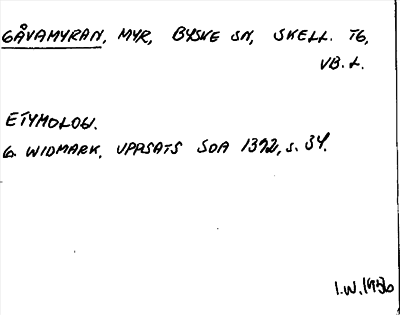 GÅVAMYRAN, MYR, BYSKE SN, SKELL. TG,
VB. L.
ETYMOLOG.
G. WIDMARK, UPPSATS SOA 1392, S. 34.
I.W. 1956